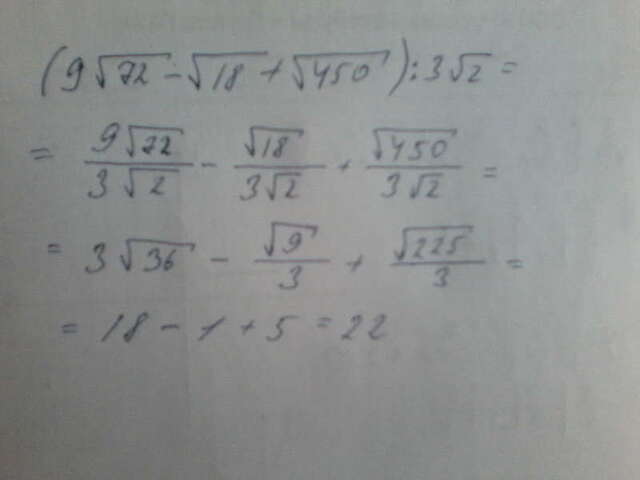 (9√72 - √18 + √450) : 3√2 =
= 9√72/3√2 - √18/3√2 + √450/3√2 =
= 3√36 - √9/3 + √225/3 =
= 18 - 1 + 5 = 22